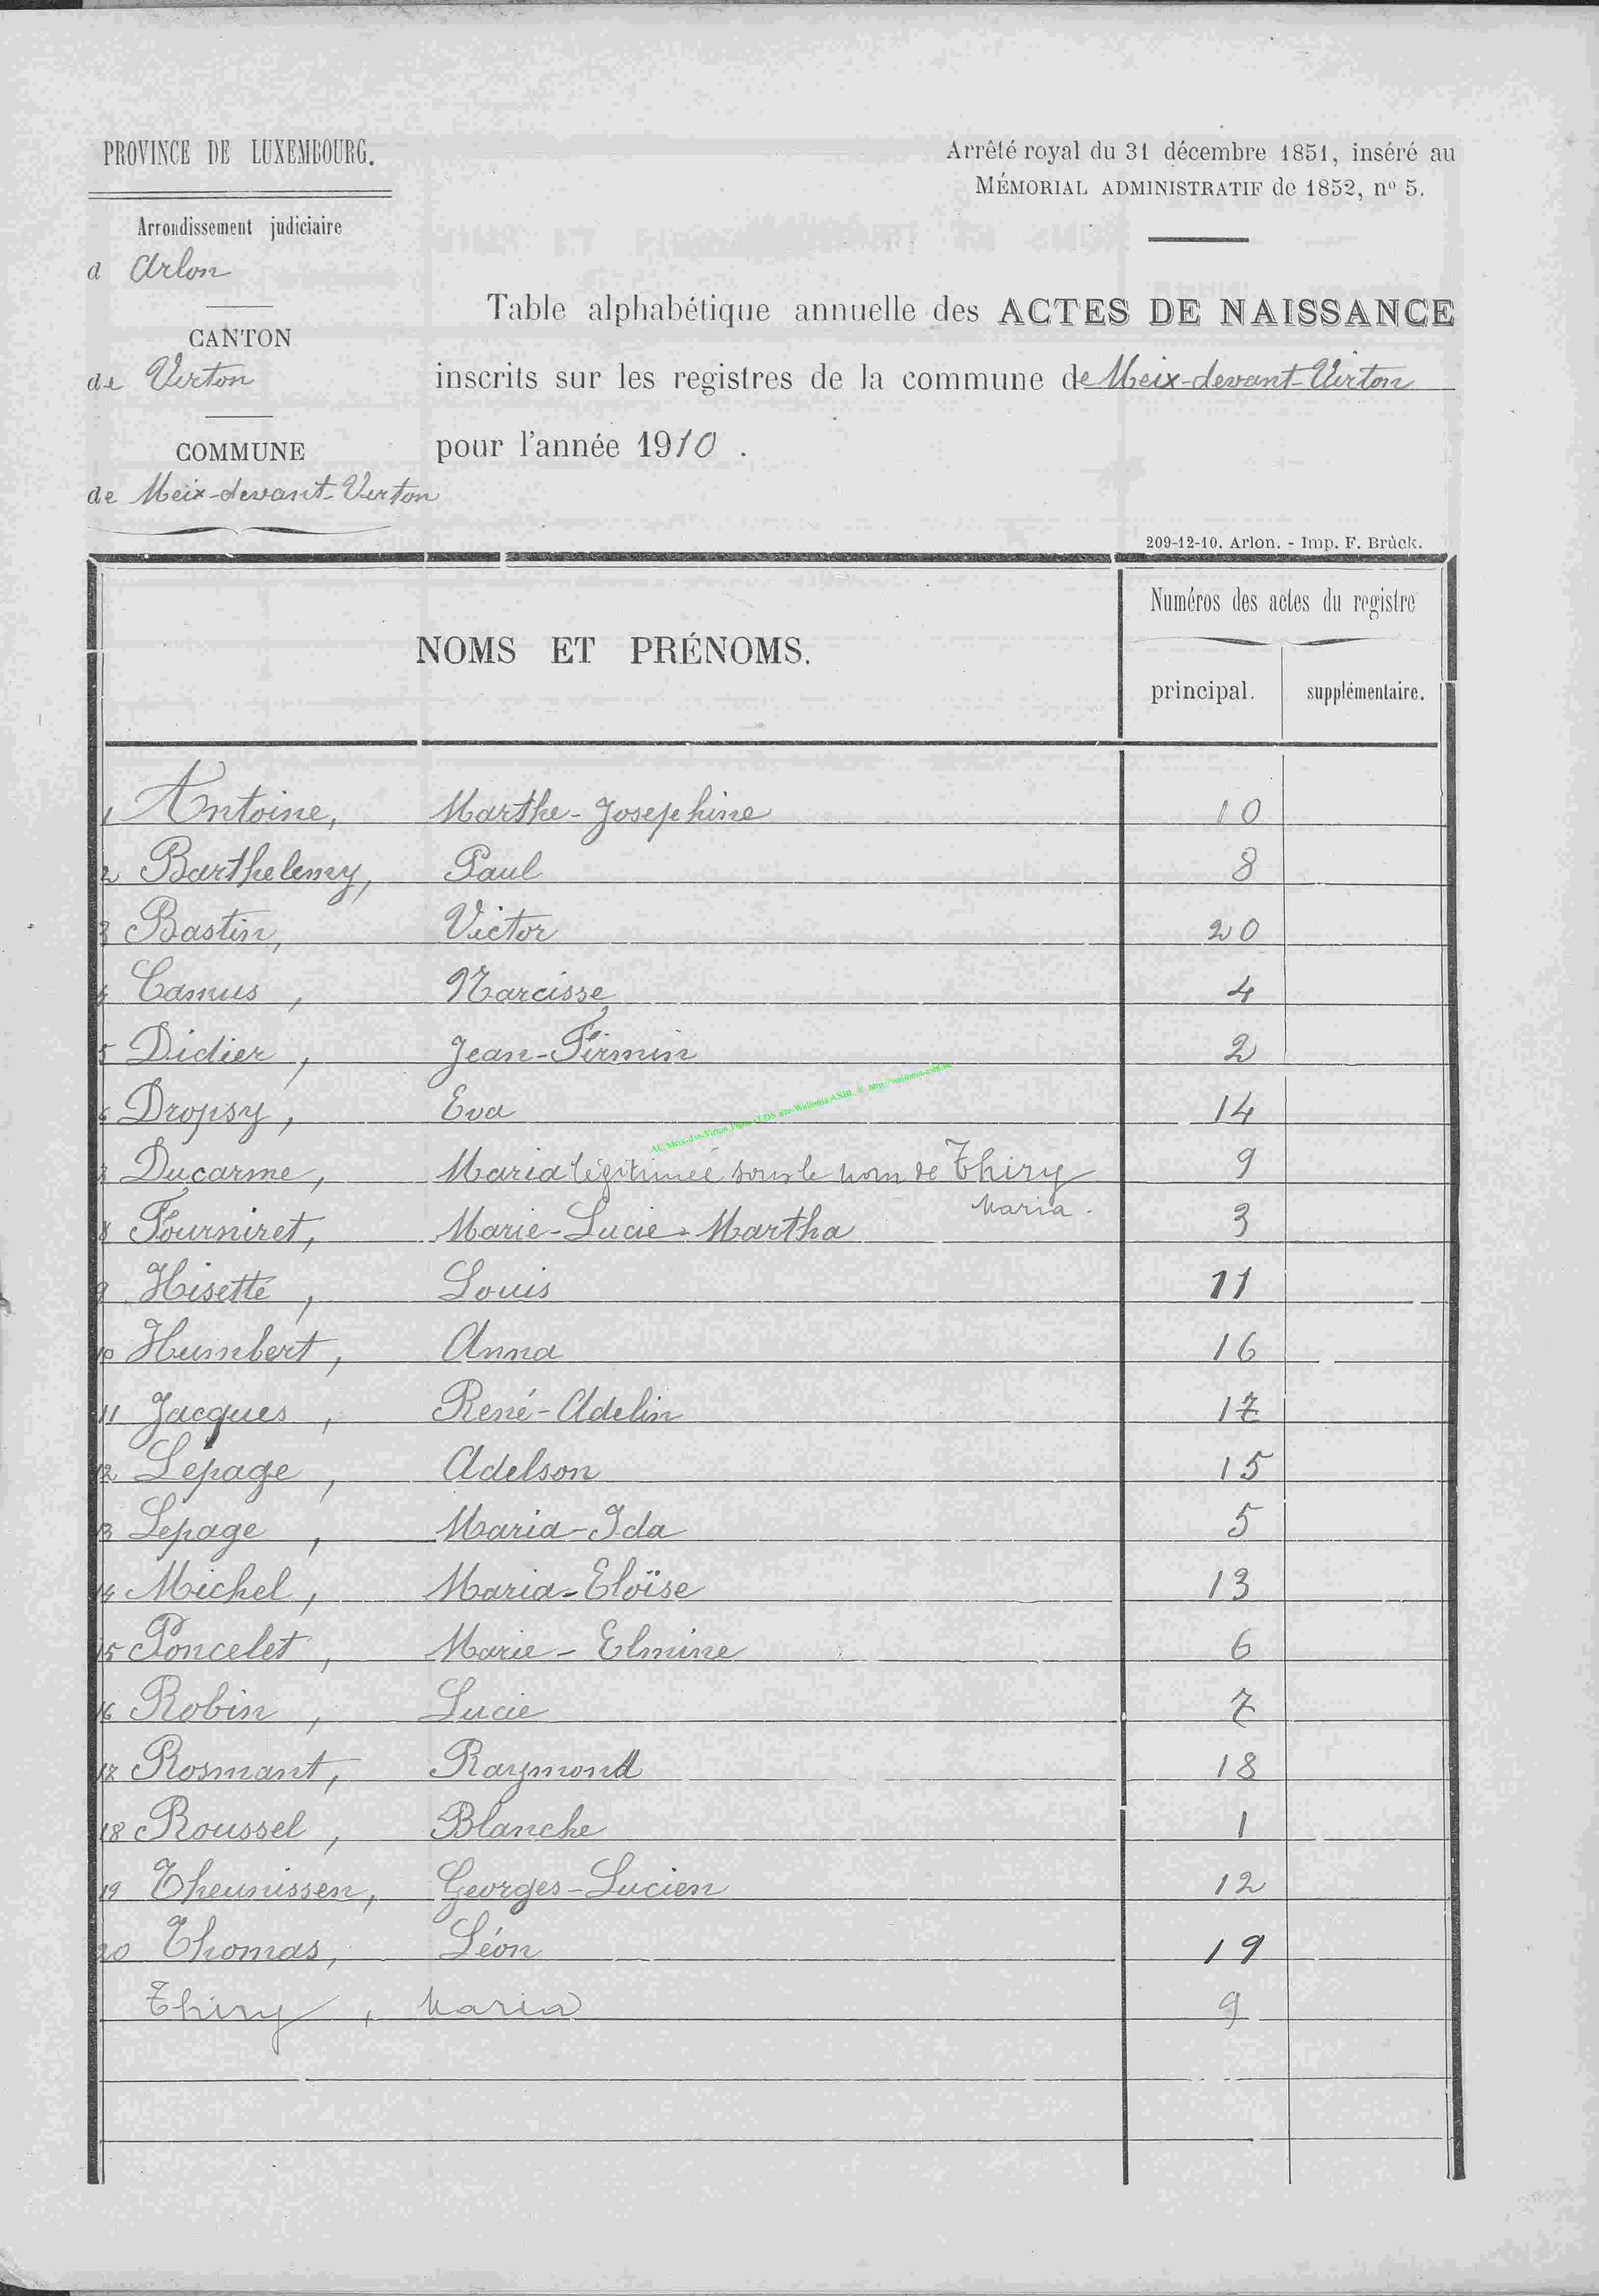 PROVINCE DE LUXEMBOURG.
Arrondissement judiciaire
d Arlon
CANTON
de Virton
COMMUNE
de Meix-devant-Virton
Arrêté royal du 31 décembre 1851, inséré au
MÉMORIAL ADMINISTRATIF de 1852, nº 5.
Table alphabétique annuelle des ACTES DE NAISSANCE
inscrits sur les registres de la commune de Meix-devant-Virton
pour l'année 1910.
209-12-10. Arlon. - Imp. F. Brück.
NOMS ET PRÉNOMS.
Numéros des actes du registre
principal. supplémentaire.
1 Antoine, Marthe-Josephine 10
2 Barthelemy, Paul 8
3 Bastin, Victor 20
4 Camus, Narcisse 4
5 Didier, Jean-Firmin 2
6 Dropsy, Eva 14
7 Ducarme, Maria légitimée sous le nom de Thiry 9
Maria.
8 Fourniret, Marie-Lucie-Martha 3
9 Hisette, Louis 11
10 Humbert, Anna 16
11 Jacques, René-Adelin 17
12 Lepage, Adelson 15
13 Lepage, Maria-Ida 5
14 Michel, Maria-Eloïse 13
15 Poncelet, Marie-Elmine 6
16 Robin, Lucie 7
17 Rosmant, Raymond 18
18 Roussel, Blanche 1
19 Theunissen, Georges-Lucien 12
20 Thomas, Léon 19
Thiry, Maria 9